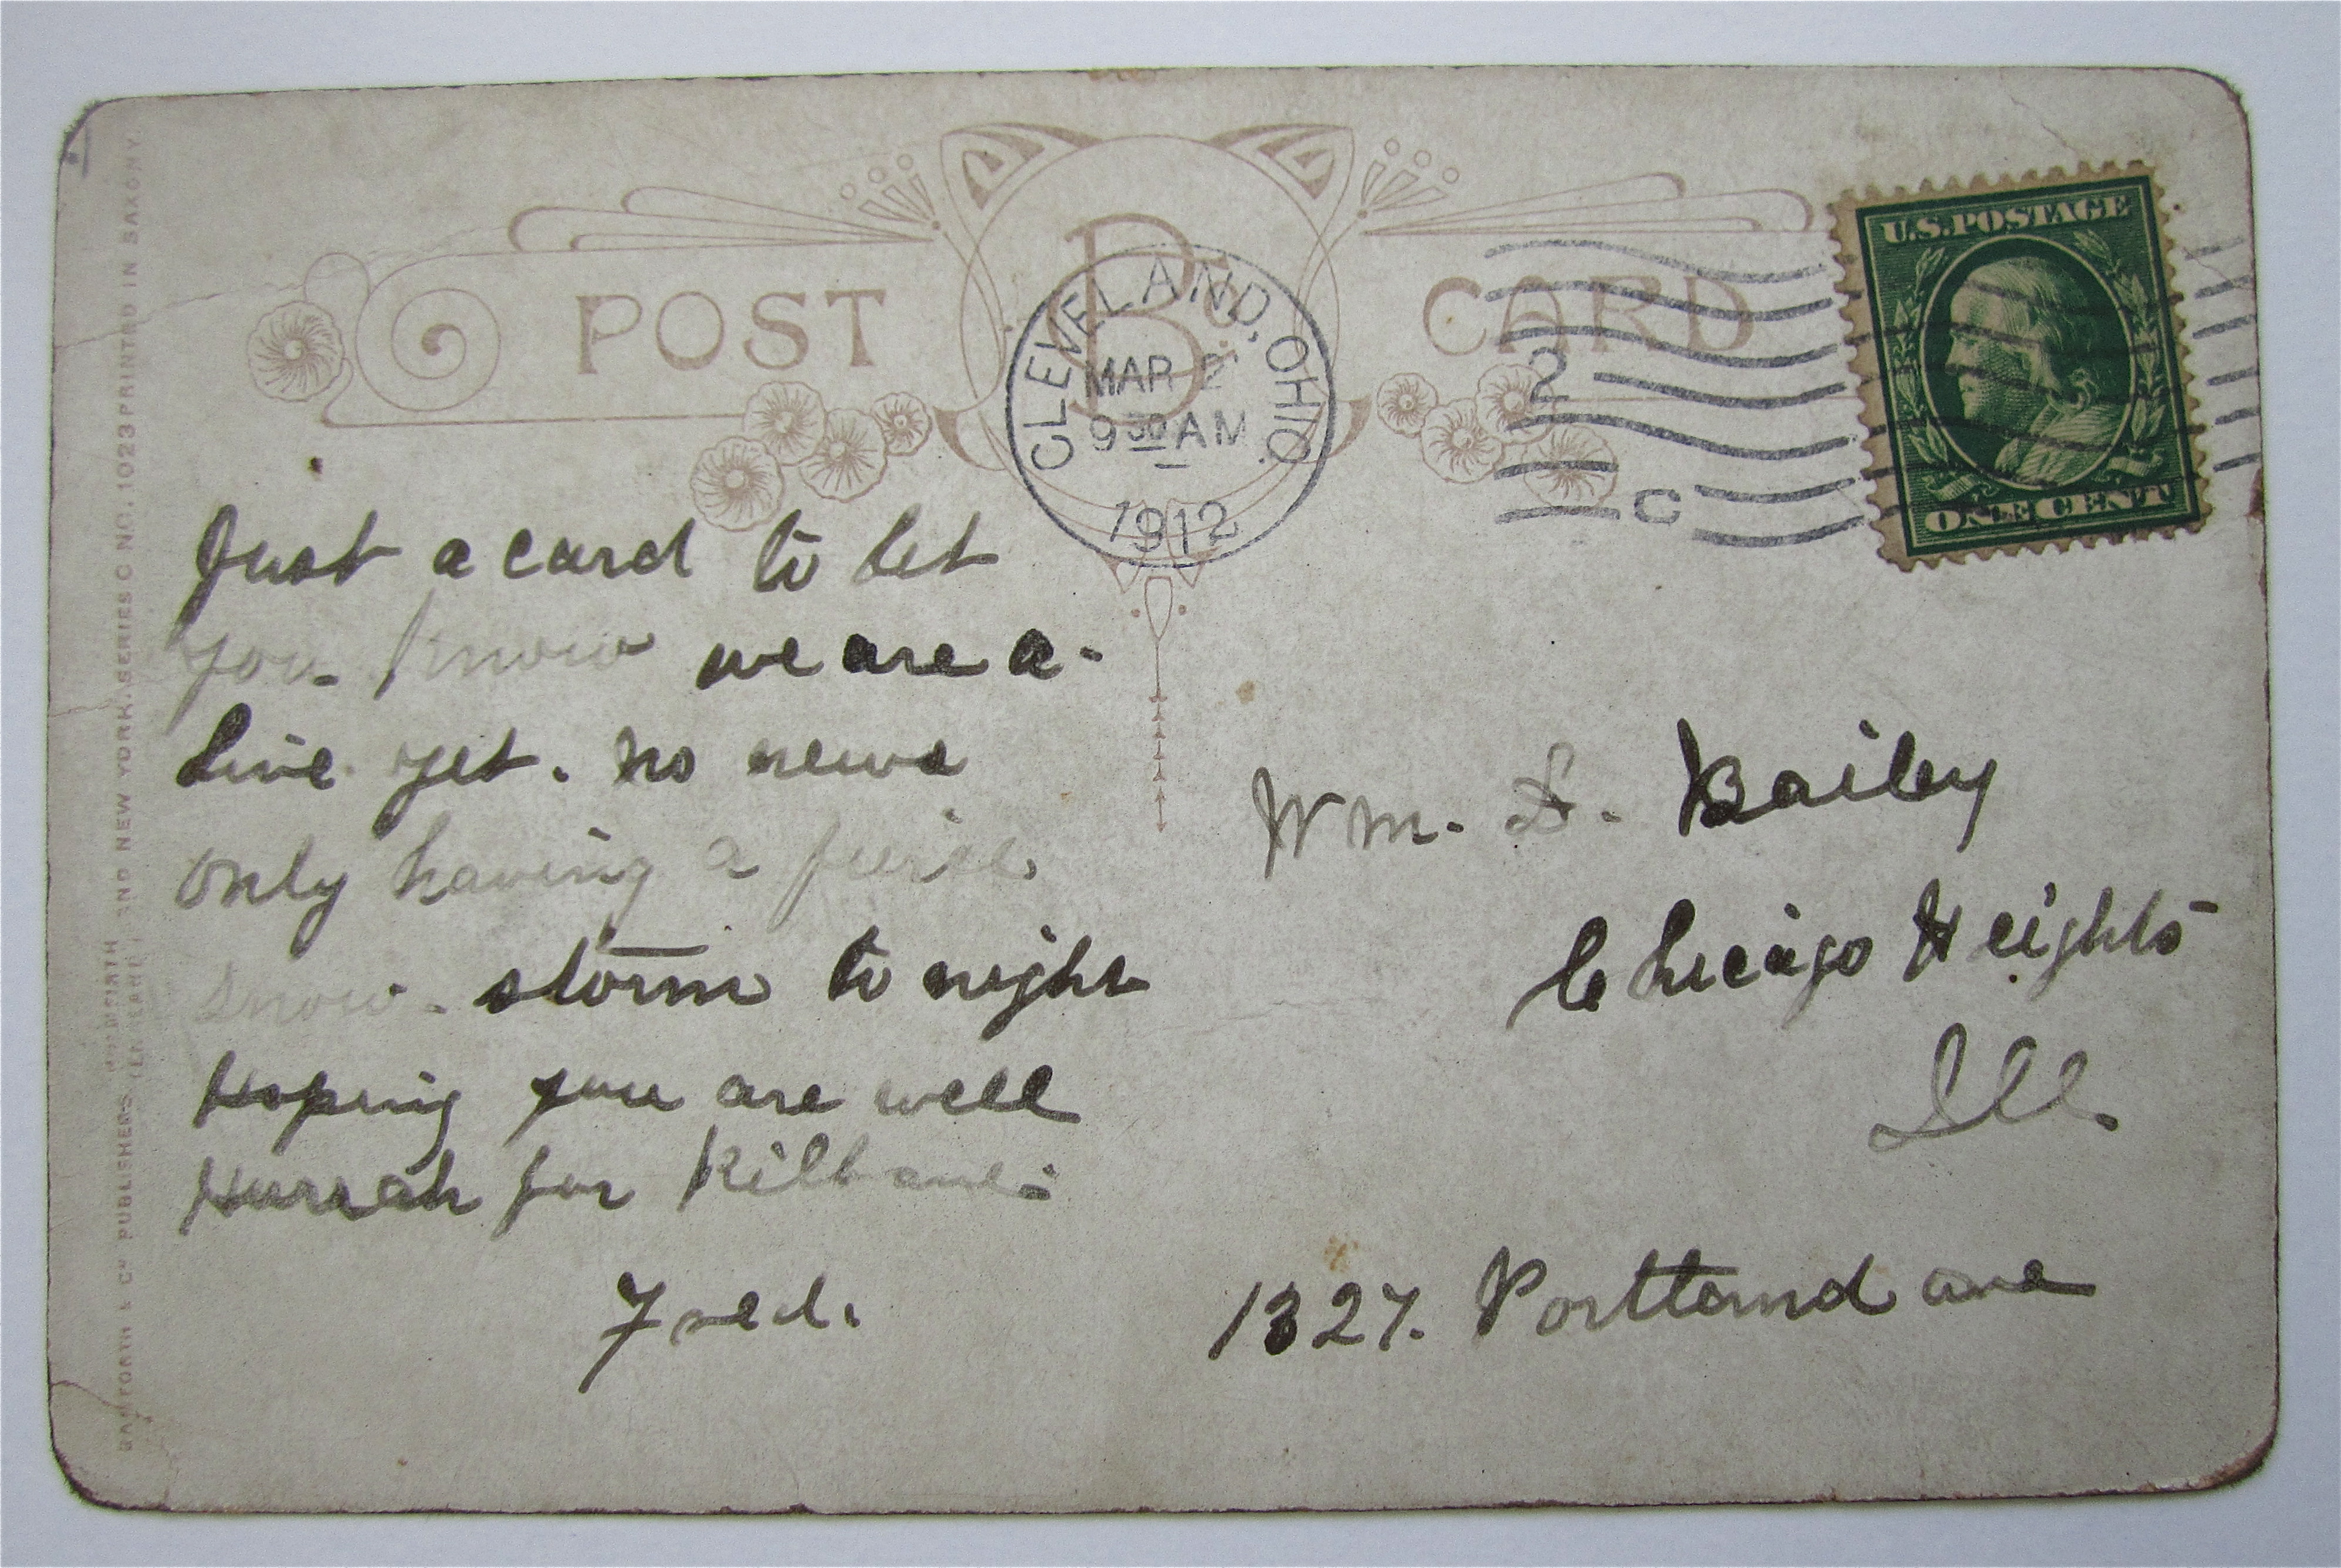 POST CARD
B
CLEVELAND, OHIO.
MAR 2
9 30 AM
1912
2
C
U.S. POSTAGE
ONE CENT
Just a card to let
you know we are a-
live yet. No news
only having a fierce
snow storm to night
Hoping you are well
Hurrah for Kilbane.
Fred.
Wm. S. Bailey
Chicago Heights
Ill.
1327. Portland ave
BAMFORTH & Co PUBLISHERS AND NEW YORK. SERIES C NO. 1023 PRINTED IN SAXONY.